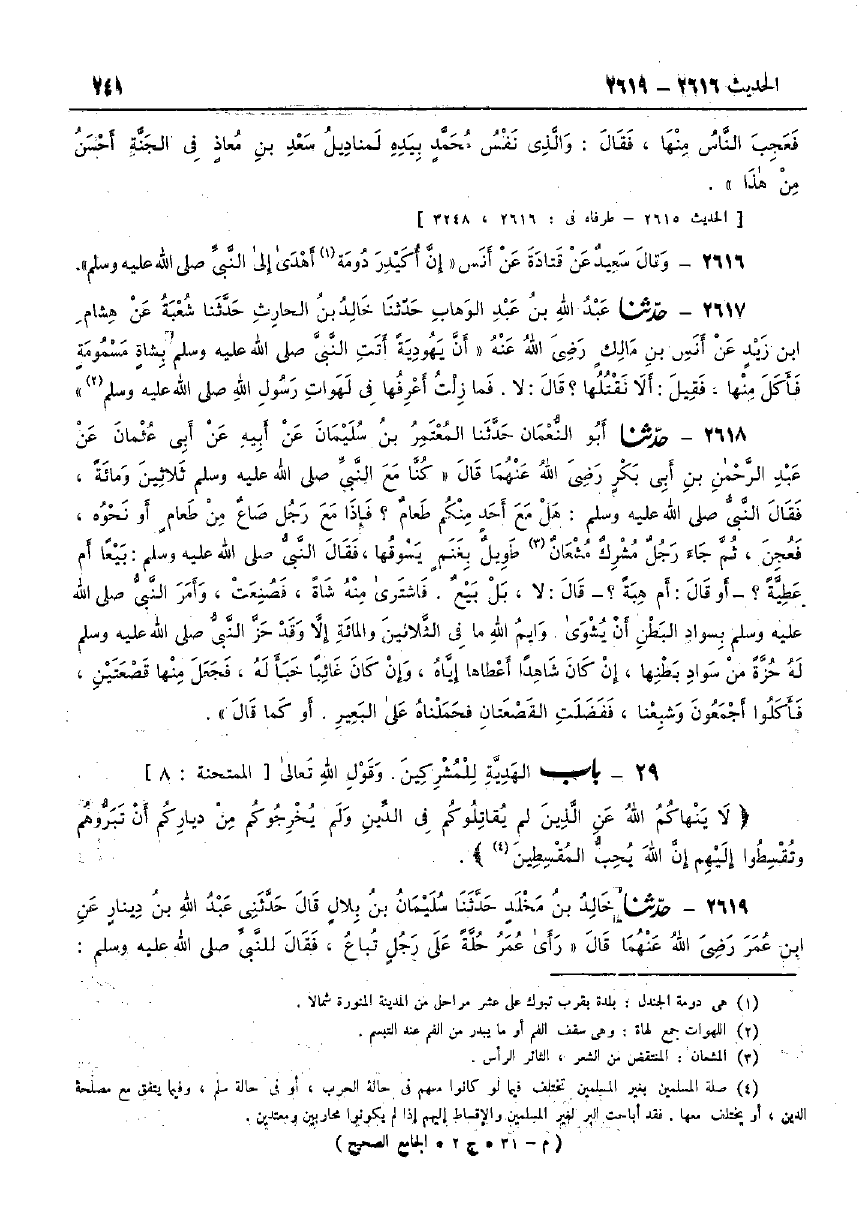 الحديث ٢٦١٦ – ٢٦١٩ ٢٤١
فَعَجِبَ النَّاسُ مِنْهَا ، فَقَالَ : وَالَّذِى نَفْسُ مُحَمَّدٍ بِيَدِهِ لَمناديلُ سَعْدِ بنِ مُعاذٍ فِى الجَنَّةِ أَحْسَنُ
مِنْ هٰذَا » .
[ الحديث ٢٦١٥ – طرفاه فى : ٢٦١٦ ، ٣٢٤٨ ]
٢٦١٦ – وَقالَ سَعِيدٌ عَنْ قَتادَةَ عَنْ أَنَسٍ « إِنَّ أُكَيْدِرَ دُومَةَ (١) أَهْدَىٰ إِلىٰ النَّبِيِّ صلى الله عليه وسلم».
٢٦١٧ – حدّثنا عَبْدُ اللهِ بنُ عَبْدِ الوَهابِ حَدّثَنَا خَالِدُ بنُ الحارِثِ حَدَّثَنا شُعْبَةُ عَنْ هِشامِ
ابنِ زَيْدٍ عَنْ أَنَسِ بنِ مَالِكٍ رَضِىَ اللهُ عَنْهُ « أَنَّ يَهُودِيَةً أَتَتِ النَّبِيَّ صلى الله عليه وسلم بِشاةٍ مَسْمُومَةٍ
فَأَكَلَ مِنْها ، فَقِيلَ : أَلَا نَقْتُلُها ؟ قَالَ : لا . فَما زِلْتُ أَعْرِفُها فِى لَهَواتِ رَسُولِ اللهِ صلى الله عليه وسلم (٢) »
٢٦١٨ – حدّثنا أَبُو النُّعْمَانِ حَدَّثَنا المُعْتَمِرُ بنُ سُلَيْمَانَ عَنْ أَبِيهِ عَنْ أَبِى عُثْمانَ عَنْ
عَبْدِ الرَّحْمٰنِ بنِ أَبِى بَكْرٍ رَضِىَ اللهُ عَنْهُمَا قَالَ « كُنَّا مَعَ النَّبِيِّ صلى الله عليه وسلم ثَلاثِينَ وَمائَةً ،
فَقَالَ النَّبِيُّ صلى الله عليه وسلم : هَلْ مَعَ أَحَدٍ مِنْكُم طَعامٌ ؟ فَإِذَا مَعَ رَجُلٍ صَاعٌ مِنْ طَعامٍ أَو نَحْوُه ،
فَعُجِنَ ، ثُمَّ جَاءَ رَجُلٌ مُشْرِكٌ مُشْعَانٌّ (٣) طَوِيلٌ بِغَنَمٍ يَسُوقُها ، فَقَالَ النَّبِيُّ صلى الله عليه وسلم : بَيْعًا أَم
عَطِيَّةً ؟ – أَو قَالَ : أَم هِبَةً ؟ – قَالَ : لا ، بَلْ بَيْعٌ . فَاشْتَرىٰ مِنْهُ شَاةً ، فَصُنِعَتْ ، وَأَمَرَ النَّبِيُّ صلى الله
عليه وسلم بِسوادِ البَطْنِ أَنْ يُشْوَىٰ . وَايمُ اللهِ ما فِى الثَّلاثينَ والمائَةِ إِلَّا وَقَدْ حَزَّ النَّبِيُّ صلى الله عليه وسلم
لَهُ حُزَّةً منْ سَوادِ بَطْنِها ، إِنْ كَانَ شَاهِدًا أَعْطاها إِيَّاهُ ، وَإِنْ كَانَ غَائِبًا خَبَأَ لَهُ ، فَجَعَلَ مِنْها قَصْعَتَيْنِ ،
فَأَكَلُوا أَجْمَعُونَ وَشَبِعْنا ، فَفَضَلَتِ القَصْعَتانِ فحَمَلْناهُ عَلىٰ البَعِيرِ . أَو كَما قَالَ » .
٢٩ – باب الهَدِيَّةِ لِلْمُشْرِكِينَ . وَقَوْلِ اللهِ تَعالىٰ [ الممتحنة : ٨ ]
﴿ لَا يَنْهاكُمُ اللهُ عَنِ الَّذِينَ لم يُقاتِلُوكُم فِى الدِّينِ وَلَم يُخْرِجُوكُم مِنْ ديارِكُم أَنْ تَبَرُّوهُم
وتُقْسِطُوا إِلَيْهِم إِنَّ اللهَ يُحِبُّ المُقْسِطِينَ (٤) ﴾ .
٢٦١٩ – حدّثنا خَالِدُ بنُ مَخْلَدٍ حَدَّثَنَا سُلَيْمَانُ بنُ بِلالٍ قَالَ حَدَّثَنِى عَبْدُ اللهِ بنُ دِينارٍ عَنِ
ابنِ عُمَرَ رَضِىَ اللهُ عَنْهُمَا قَالَ « رَأَىٰ عُمَرُ حُلَّةً عَلَى رَجُلٍ تُباعُ ، فَقَالَ للنَّبِيِّ صلى الله عليه وسلم :
(١) هى دومة الجندل : بلدة بقرب تبوك على عشر مراحل من المدينة المنورة شمالا .
(٢) اللهوات جمع لهاة : وهى سقف الفم أو ما يبدر من الفم عند التبسم .
(٣) المشعان : المنتفض من الشعر ، الثائر الرأس .
(٤) صلة المسلمين بغير المسلمين تختلف فيما لو كانوا منهم فى حالة الحرب ، أو فى حالة سلم ، وفيما يتفق مع مصلحة
الدين ، أو يختلف معها . فقد أباحت البر لغير المسلمين والإقساط إليهم إذا لم يكونوا محاربين ومعتدين .
( م – ٣١ * ج ٢ * الجامع الصحيح )